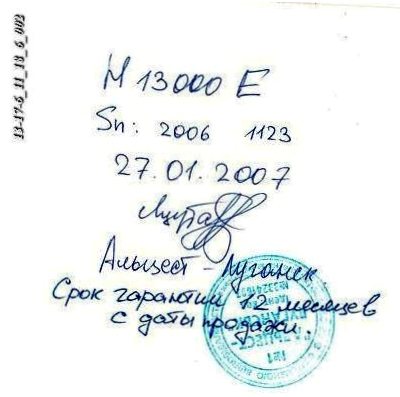 H 13000 E
Sn: 2006 1123
27.01.2007
Альцест - Луганск
Срок гарантии 12 месяцев
с даты продажи.